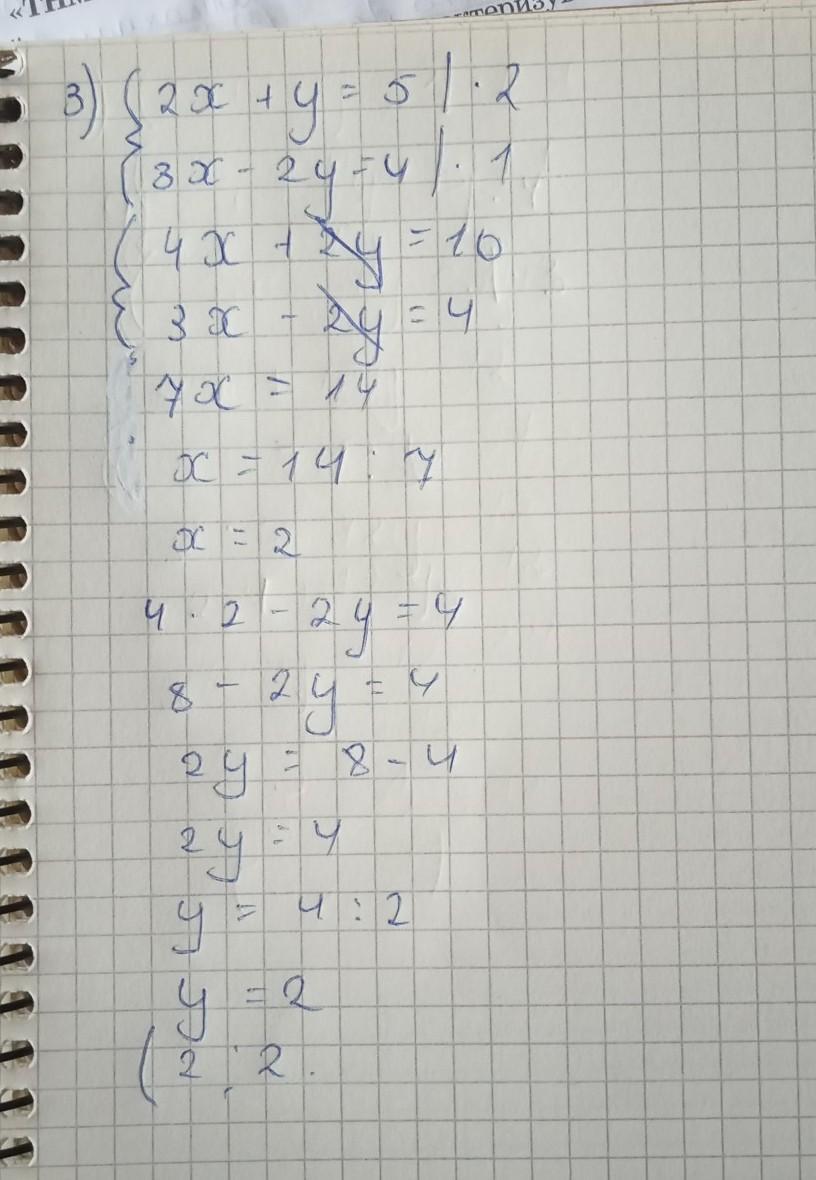 «ТНМ
3) { 2x + y = 5 | · 2
3x - 2y = 4 | · 1
{ 4x + 2y = 10
3x - 2y = 4
7x = 14
x = 14 : 7
x = 2
4 · 2 - 2y = 4
8 - 2y = 4
2y = 8 - 4
2y = 4
y = 4 : 2
y = 2
( 2 ; 2 .